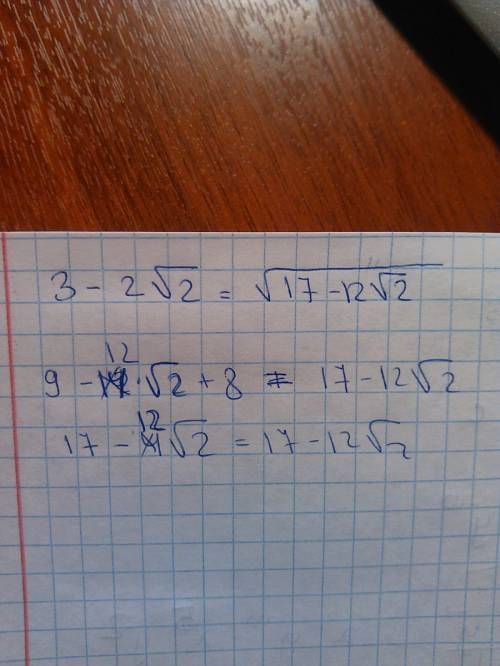 3 - 2√2 = √17 - 12√2
9 - 12·√2 + 8 = 17 - 12√2
17 - 12√2 = 17 - 12√2